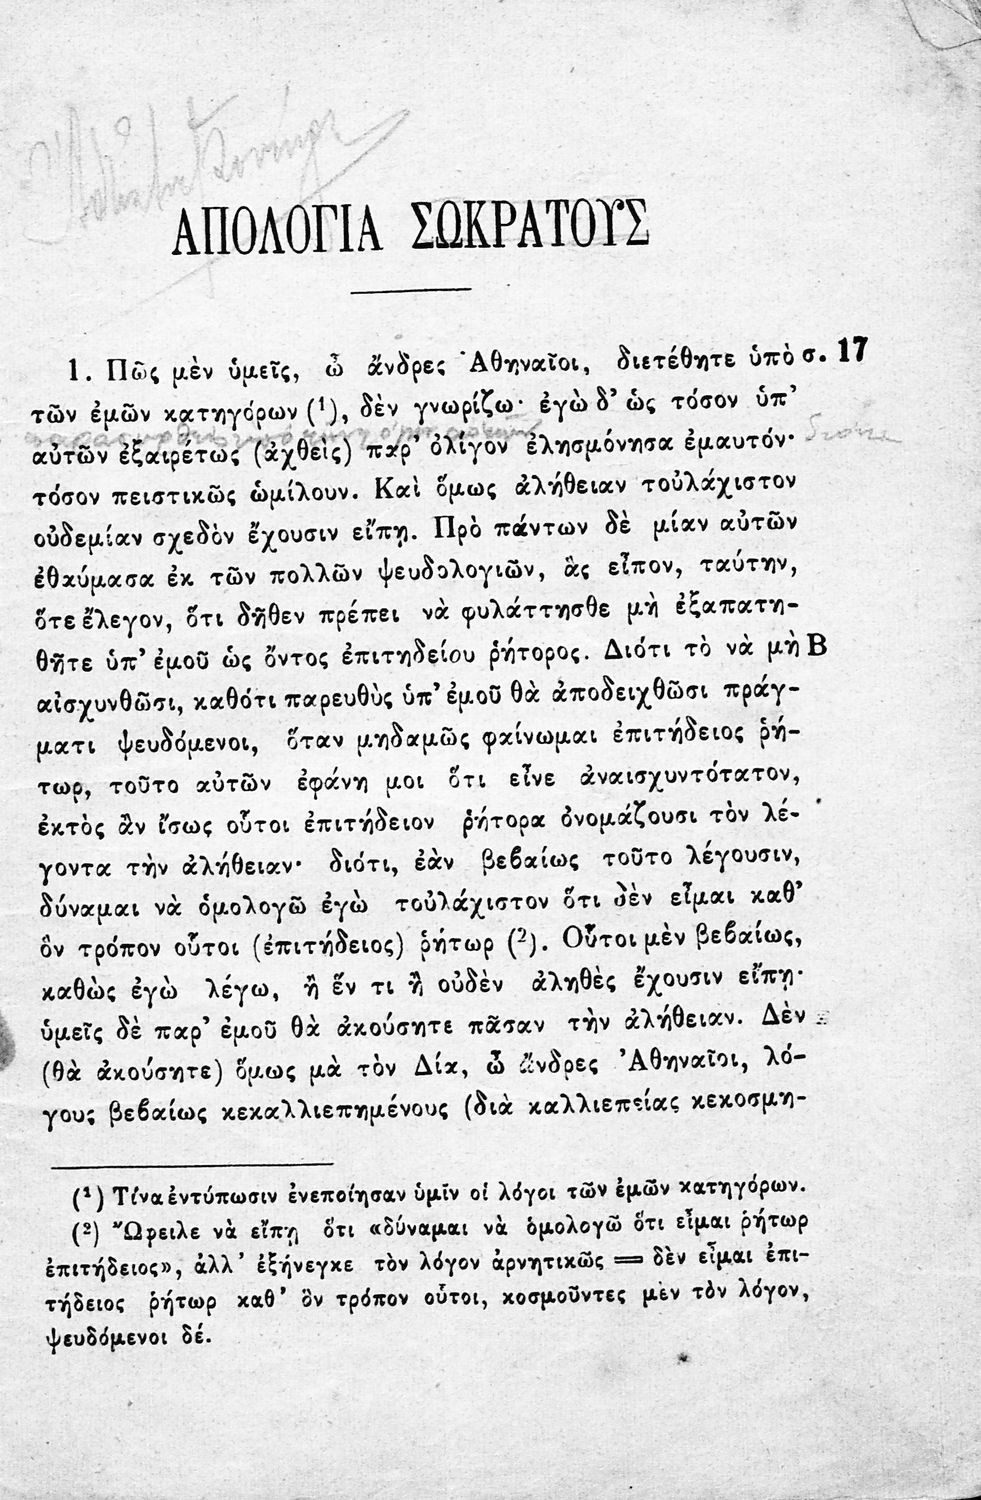 ΑΠΟΛΟΓΙΑ ΣΩΚΡΑΤΟΥΣ
1. Πῶς μὲν ὑμεῖς, ὦ ἄνδρες Ἀθηναῖοι, διετέθητε ὑπὸ σ. 17
τῶν ἐμῶν κατηγόρων (¹), δὲν γνωρίζω· ἐγὼ δ' ὡς τόσον ὑπ'
αὐτῶν ἐξαιρέτως (ἀχθεὶς) παρ' ὀλίγον ἐλησμόνησα ἐμαυτόν·
τόσον πειστικῶς ὡμίλουν. Καὶ ὅμως ἀλήθειαν τοὐλάχιστον
οὐδεμίαν σχεδὸν ἔχουσιν εἴπῃ. Πρὸ πάντων δὲ μίαν αὐτῶν
ἐθαύμασα ἐκ τῶν πολλῶν ψευδολογιῶν, ἃς εἶπον, ταύτην,
ὅτε ἔλεγον, ὅτι δῆθεν πρέπει νὰ φυλάττησθε μὴ ἐξαπατη-
θῆτε ὑπ' ἐμοῦ ὡς ὄντος ἐπιτηδείου ῥήτορος. Διότι τὸ νὰ μὴ Β
αἰσχυνθῶσι, καθότι παρευθὺς ὑπ' ἐμοῦ θὰ ἀποδειχθῶσι πράγ-
ματι ψευδόμενοι, ὅταν μηδαμῶς φαίνωμαι ἐπιτήδειος ῥή-
τωρ, τοῦτο αὐτῶν ἐφάνη μοι ὅτι εἶνε ἀναισχυντότατον,
ἐκτὸς ἂν ἴσως οὗτοι ἐπιτήδειον ῥήτορα ὀνομάζουσι τὸν λέ-
γοντα τὴν ἀλήθειαν· διότι, ἐὰν βεβαίως τοῦτο λέγουσιν,
δύναμαι νὰ ὁμολογῶ ἐγὼ τοὐλάχιστον ὅτι δὲν εἶμαι καθ'
ὃν τρόπον οὗτοι (ἐπιτήδειος) ῥήτωρ (²). Οὗτοι μὲν βεβαίως,
καθὼς ἐγὼ λέγω, ἢ ἕν τι ἢ οὐδὲν ἀληθὲς ἔχουσιν εἴπῃ·
ὑμεῖς δὲ παρ' ἐμοῦ θὰ ἀκούσητε πᾶσαν τὴν ἀλήθειαν. Δὲν
(θὰ ἀκούσητε) ὅμως μὰ τὸν Δία, ὦ ἄνδρες Ἀθηναῖοι, λό-
γους βεβαίως κεκαλλιεπημένους (διὰ καλλιεπείας κεκοσμη-
(¹) Τίνα ἐντύπωσιν ἐνεποίησαν ὑμῖν οἱ λόγοι τῶν ἐμῶν κατηγόρων.
(²) Ὤφειλε νὰ εἴπῃ ὅτι «δύναμαι νὰ ὁμολογῶ ὅτι εἶμαι ῥήτωρ
ἐπιτήδειος», ἀλλ' ἐξήνεγκε τὸν λόγον ἀρνητικῶς = δὲν εἶμαι ἐπι-
τήδειος ῥήτωρ καθ' ὃν τρόπον οὗτοι, κοσμοῦντες μὲν τὸν λόγον,
ψευδόμενοι δέ.